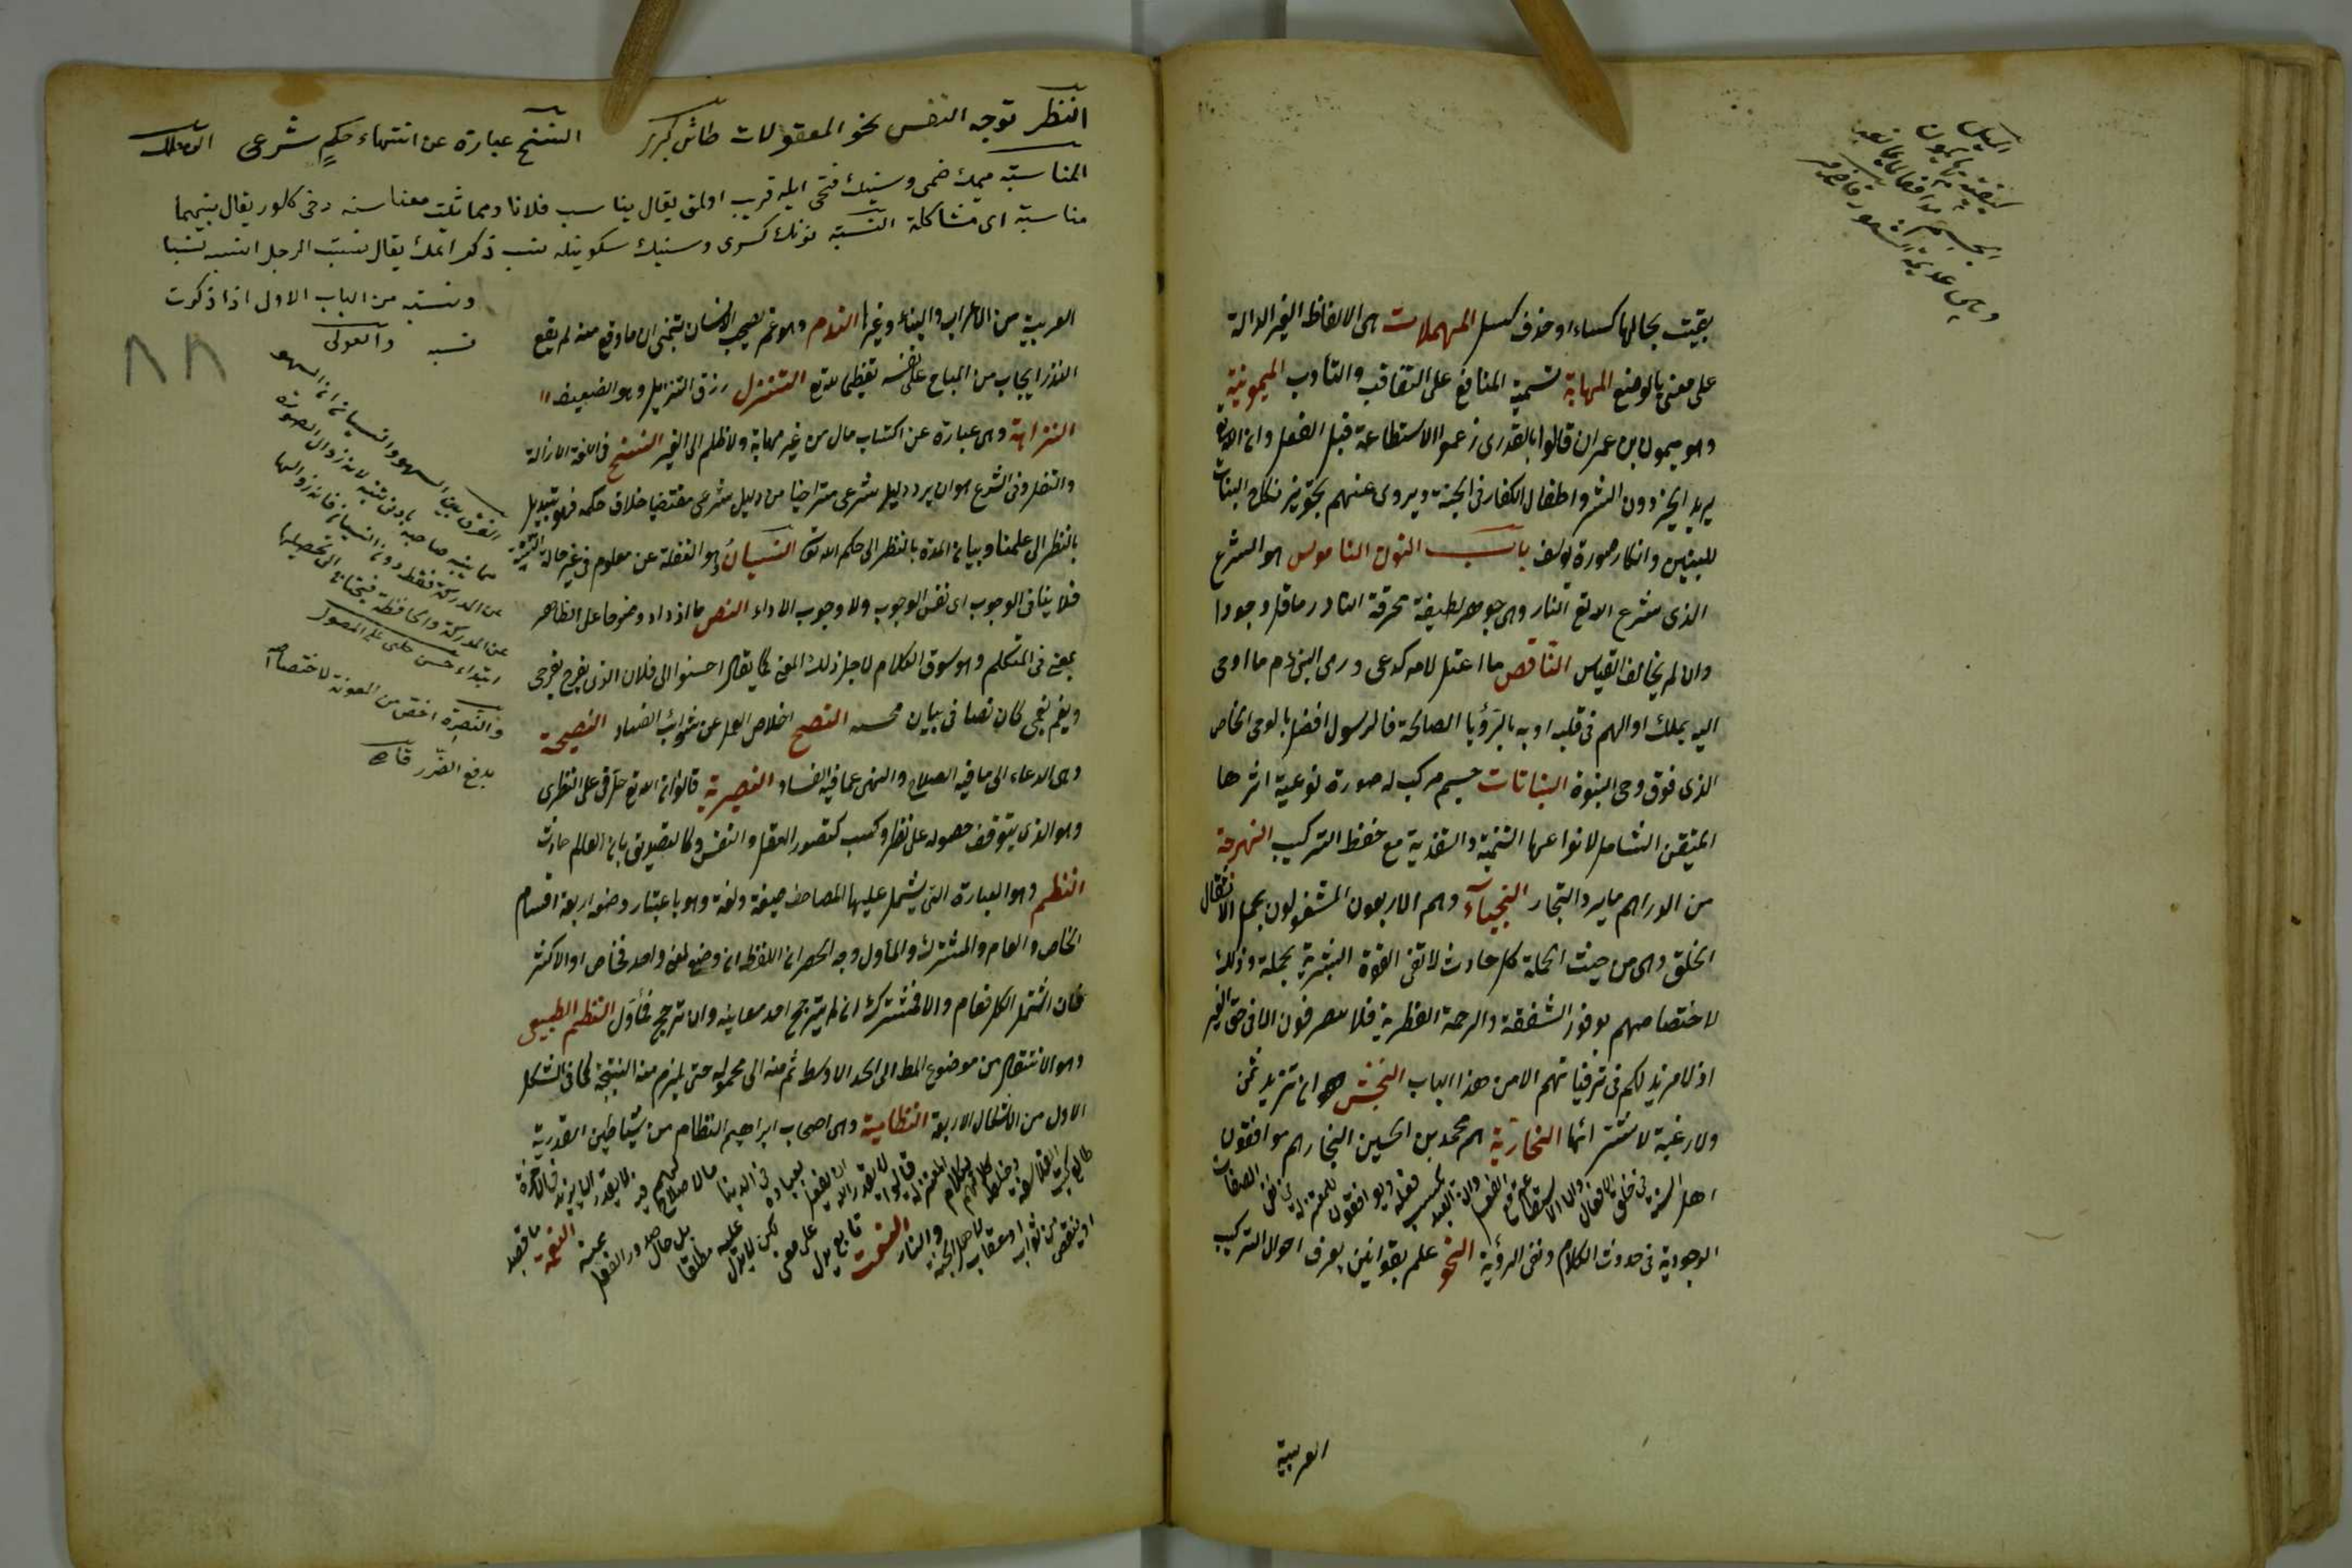 الميل
كيفية بها يكون
الجسم مدافعا لما يمانعه
بقيت بحالها كساء او حذف كسل المهملات هى الالفاظ الغير الدالة
على معنى بالوضع المهاياة قسمة المنافع على التعاقب والتناوب الميمونية
وهو ميمون بن عمران قالوا بالقدر اى زعموا الاستطاعة قبل الفعل وان الله تع
يريد الخير دون الشر واطفال الكفار فى الجنة ويروى عنهم تجويز نكاح البنات
للبنين وانكار سورة يوسف باب النون الناموس هو الشرع
الذى شرع الله تع النار وهى جوهر لطيفة محرقة النادر ما قل وجودا
وان لم يخالف القياس الناقص ما اعتل لامه كدعى ورمى النبى ءم ما اوحى
اليه بملك او الهم فى قلبه او به بالرؤيا الصالحة فالرسول افضل بالوحى الخاص
الذى فوق وحى النبوة النباتات جسم مركب له صورة نوعية اثرها
المتيقن الشامل لانواعها التنمية والتغذية مع حفظ التركيب النبهرجة
من الدراهم ما يرد التجار النجبآء وهم الاربعون المشغولون بحمل الاثقال
الخلق وهى من حيث الجملة كل حادث لا تفى القوة البشرية بحمله وذلك
لاختصاصهم بوفور الشفقة والرحمة الفطرية فلا يتصرفون الا فى حق الغير
اذ لا مزيد لهم فى ترقياتهم الا من هذا الباب النجش هو ان تزيد ثمن
ولا رغبة لا شترائها النجارية هم محمد بن الحسين النجار هم موافقون
اهل السنة فى خلق الافعال وان الاستطاعة مع الفعل وان العبد يكسب فعله ويوافقون للمعتزلة فى نفى الصفات
الوجودية فى حدوث الكلام ونفى الرؤية النحو علم بقوانين يعرف احوال التركيب
العربية
النظر توجه النفس نحو المعقولات طاش كبرى النسخ عبارة عن انتهاء حكم شرعى
المناسبة ميمك ضمى وسينك فتحى ايله قريب اولمق يقال يناسب فلانا ومماثلت معناسنه دخى كلور يقال بينهما
مناسبة اى مشاكلة النسبة نونك كسرى وسينك سكونيله نسب ذكر ايتمك يقال نسبت الرجل انسبه نسبا
ونسبة من الباب الاول اذا ذكرت
نسبه
٨٨
العربية من الاعراب والبناء وغيرها الندم وهو غم يصيب الانسان يتمنى ان ما وقع منه لم يقع
النذر ايجاب من المباح على نفسه تعظيما لله تع التنزل رزق النزيل وهو الضيف
النزاهة وهى عبارة عن اكتساب مال من غير مهانة ولا ظلم الى الغير النسخ فى اللغة الازالة
والنقل وفى الشرع هو ان يرد دليل شرعى متراخيا من دليل شرعى مقتضيا خلاف حكمه فهو تبديل
بالنظر الى علمنا وبيان المدة بالنظر الى حكم الله تع النسيان وهو الغفلة عن معلوم فى غير حالة السنة
فلا ينافى الوجوب اى نفس الوجوب ولا وجوب الاداء النص ما ازداد وضوحا على الظاهر
بمعنى فى المتكلم وهو سوق الكلام لاجل ذلك المعنى كما يقال احسنوا الى فلان الذى يفرح بفرحى
ويغم بغمى كان نصا فى بيان محبته النصح اخلاص العمل عن شوائب الفساد النصيحة
وهى الدعاء الى ما فيه الصلاح والنهى عما فيه الفساد النصيرية قالوا ان الله تع حل فى على النظرى
وهو الذى يتوقف حصوله على نظر وكسب كتصور العقل والنفس وكالتصديق بان العالم حادث
النظم وهو العبارة التى يشتمل عليها المصاحف صيغة ولغة وهو باعتبار وضعه اربعة اقسام
الخاص والعام والمشترك والمأول وجه الحصر ان اللفظ ان وضع لمعنى واحد فخاص او الاكثر
فان اشتمل الكل فعام والا فمشترك ان لم يترجح احد معانيه وان ترجح فمأول النظم الطبيعى
وهو الانتقال من موضوع المط الى الحد الاوسط ثم منه الى محموله حتى يلزم منه النتيجة كما فى الشكل
الاول من الاشكال الاربعة النظامية وهى اصحاب ابراهيم النظام من شياطين القدرية
طالع كتب الفلاسفة وخلط كلامهم بكلام المعتزلة قالوا لا يقدر الله ان يفعل بعباده فى الدنيا مالا صلاح لهم فيه ولا يقدر ان يزيد فى الآخرة
او ينقص من ثواب او عقاب لاهل الجنة والنار النعت تابع يدل على معنى لكن لا يدل عليه مطلقا بل حال صدور الفعل عنه النعمة ما قصد
الفرق بين السهو والنسيان ان السهو
زوال الصورة
عن المدركة فقط دون النسيان فانه زوالها
عن المدركة والحافظة فيحتاج الى تحصيلها
ابتداء حسن چلبى على المطول
والنصرة اخص من المعونة لاختصاصه
بدفع الضرر قاض